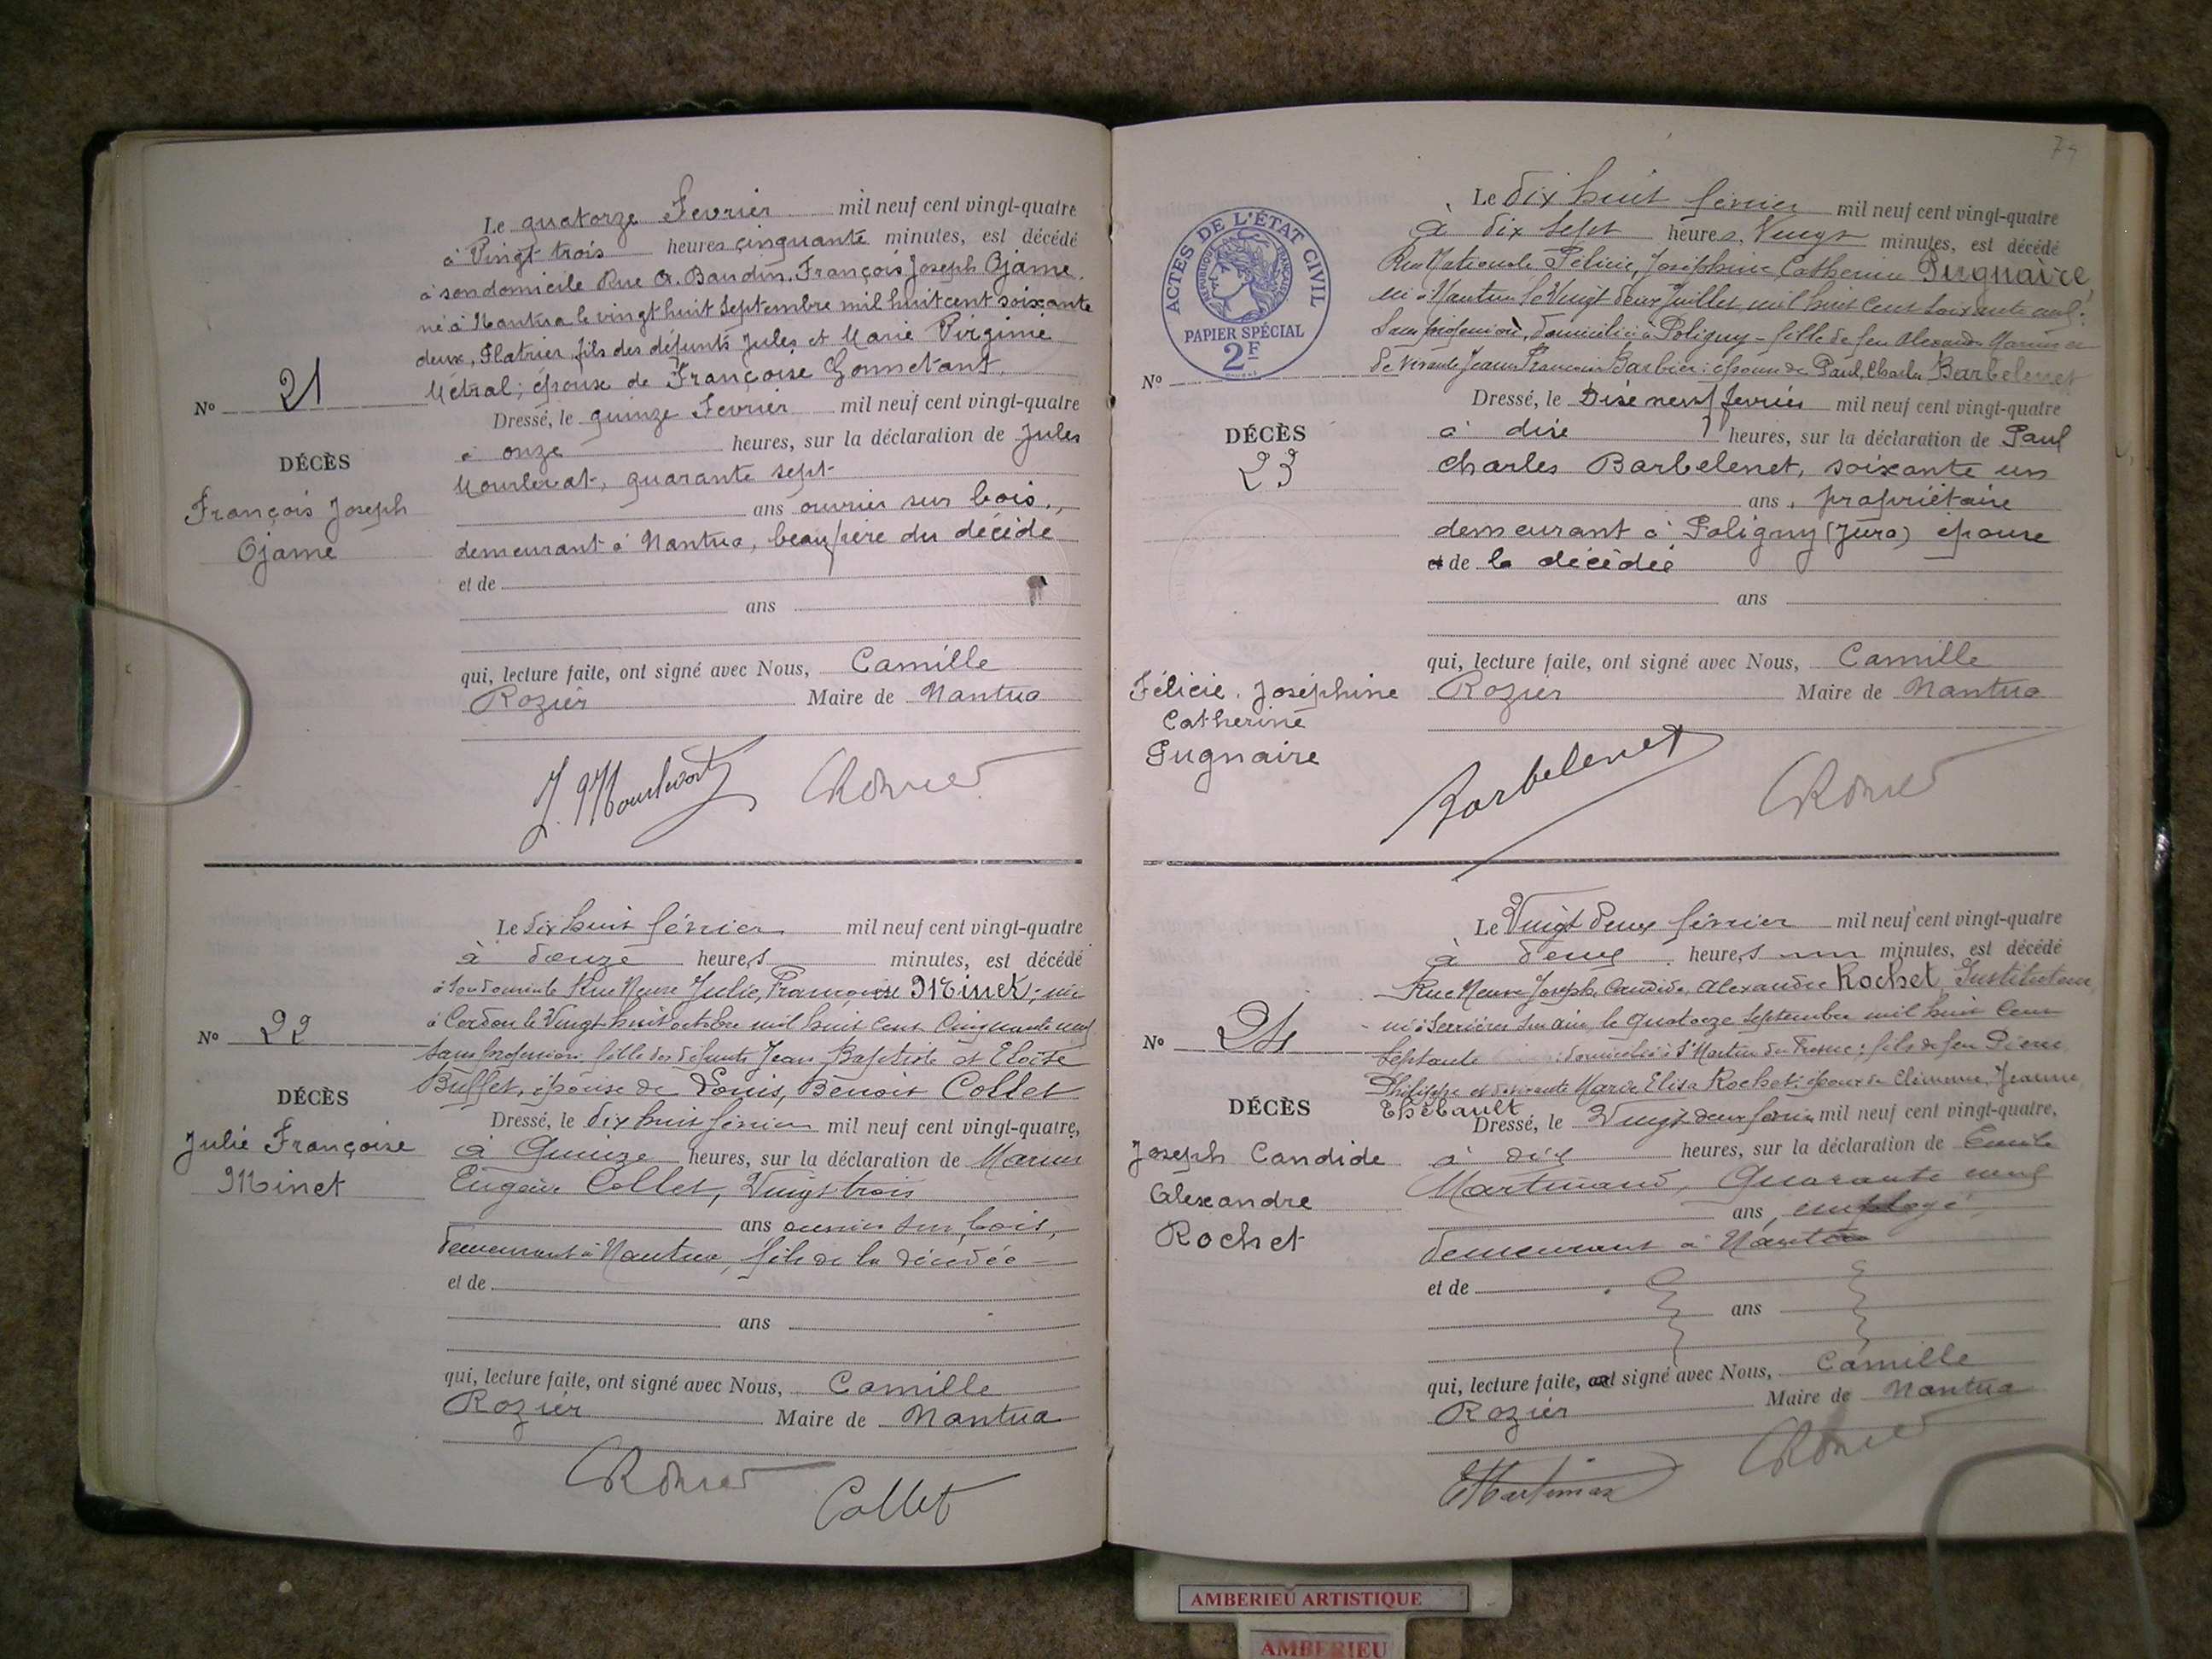 Le quatorze Fevrier mil neuf cent vingt-quatre
à Vingt trois heures cinquante minutes, est décédé
à son domicile Rue A. Baudin. François Joseph Ojame.
né à Nantua le vingt huit Septembre mil huit cent soixante
deux, Platrier, fils des défunts Jules et Marie Virginie
Métral; épouse de Françoise Gonnetant.
No 21
Dressé, le quinze Fevrier mil neuf cent vingt-quatre
à onze heures, sur la déclaration de Jules
DÉCÈS
François Joseph
Ojame
quarante sept
ans ouvrier sur bois.,
demeurant à Nantua, beau père du décédé
et de
ans
qui, lecture faite, ont signé avec Nous, Camille
Rozier Maire de Nantua
Le dix huit février mil neuf cent vingt-quatre
à douze heures minutes, est décédé
à son domicile Rue Neuve Julie, Françoise Minet; née
à Cordon le Vingt huit octobre mil huit cent Cinquante neuf
sans profession fille des défunts Jean Baptiste et Eloïse
Buffet, épouse de Louis, Benoit Collet
No 22
Dressé, le dix huit février mil neuf cent vingt-quatre,
à Quinze heures, sur la déclaration de Marius
DÉCÈS
Julie Françoise
Minet
Eugène Collet, Vingt trois
ans ouvrier sur bois,
demeurant à Nantua, fils de la décédée
et de
ans
qui, lecture faite, ont signé avec Nous, Camille
Rozier Maire de Nantua
Collet
ACTES DE L'ÉTAT CIVIL
RÉPUBLIQUE FRANÇAISE
PAPIER SPÉCIAL
2F
Le dix huit février mil neuf cent vingt-quatre
à dix sept heures, Vingt minutes, est décédé
Rue Nationale Félicie, Joséphine Catherine Pugnaire,
née à Nantua le Vingt deux Juillet mil huit cent soixante
Sans profession, domiciliée à Poligny - fille de feu Alexandre et
de vivante Jeanne Barbier: épouse de Paul, Charles Barbelenet
No
Dressé, le Dise neuf fevrier mil neuf cent vingt-quatre
à dise heures, sur la déclaration de Paul
DÉCÈS
23
Félicie. Joséphine
Catherine
Pugnaire
charles Barbelenet, soixante un
ans, propriétaire
demeurant à Poligny (Jura) épouse
et de la décédée
ans
qui, lecture faite, ont signé avec Nous, Camille
Rozier Maire de Nantua
Barbelenet
Le Vingt deux février mil neuf cent vingt-quatre
à deux heures minutes, est décédé
Rue Neuve Joseph, Candide, Alexandre Rochet, Instituteur,
né à Serrières sur ain, le Quatorze Septembre mil huit Cent
Septante domicilié à St Martin du Fresne; fils de feu Pierre
Philippe et de vivante Marie Elisa Rochet: époux de Clémence, Jeanne
Thébault
No 24
Dressé, le Vingt deux février mil neuf cent vingt-quatre,
à dix heures, sur la déclaration de Emile
DÉCÈS
Joseph Candide
Alexandre
Rochet
Martinand, Quarante neuf
ans, employé
demeurant à Nantua
et de
ans
qui, lecture faite, ont signé avec Nous, Camille
Rozier Maire de Nantua
AMBERIEU ARTISTIQUE
AMBERIEU